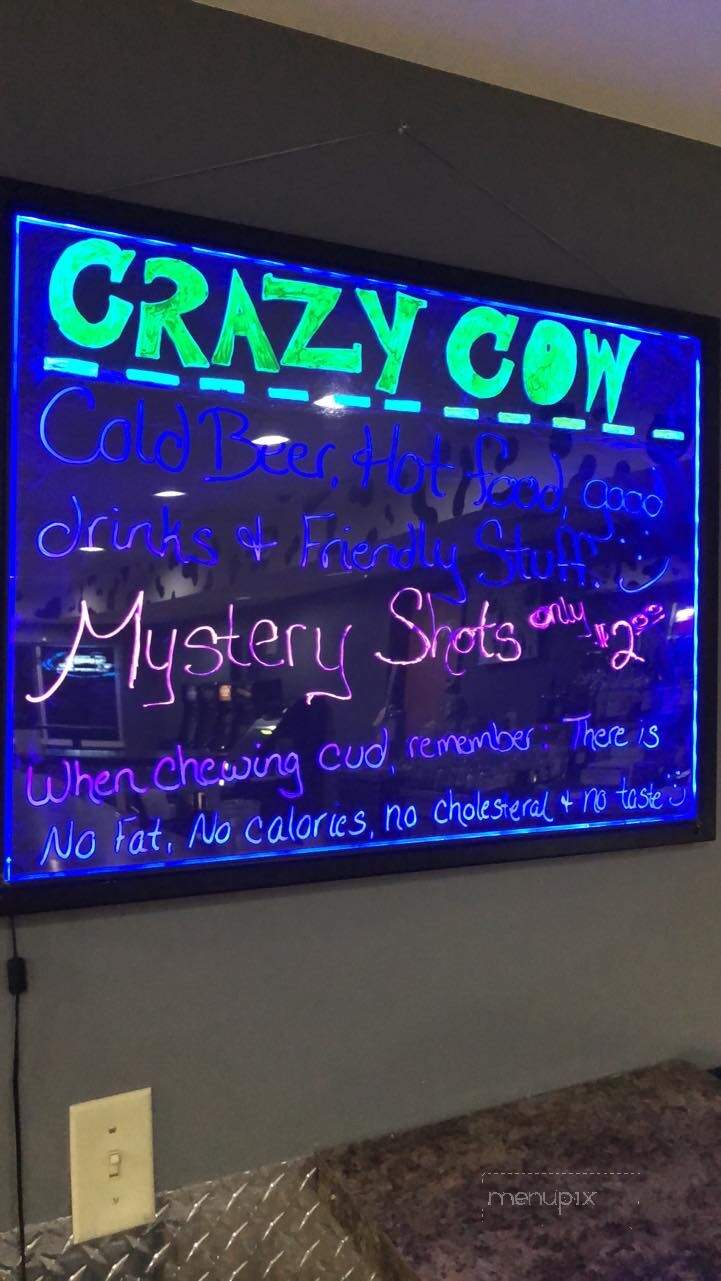 CRAZY COW
Cold Beer, Hot food, good
drinks & Friendly Stuff.
Mystery Shots only $2.00
When chewing cud, remember: There is
No Fat, No calories, no cholesteral & no taste
menupix